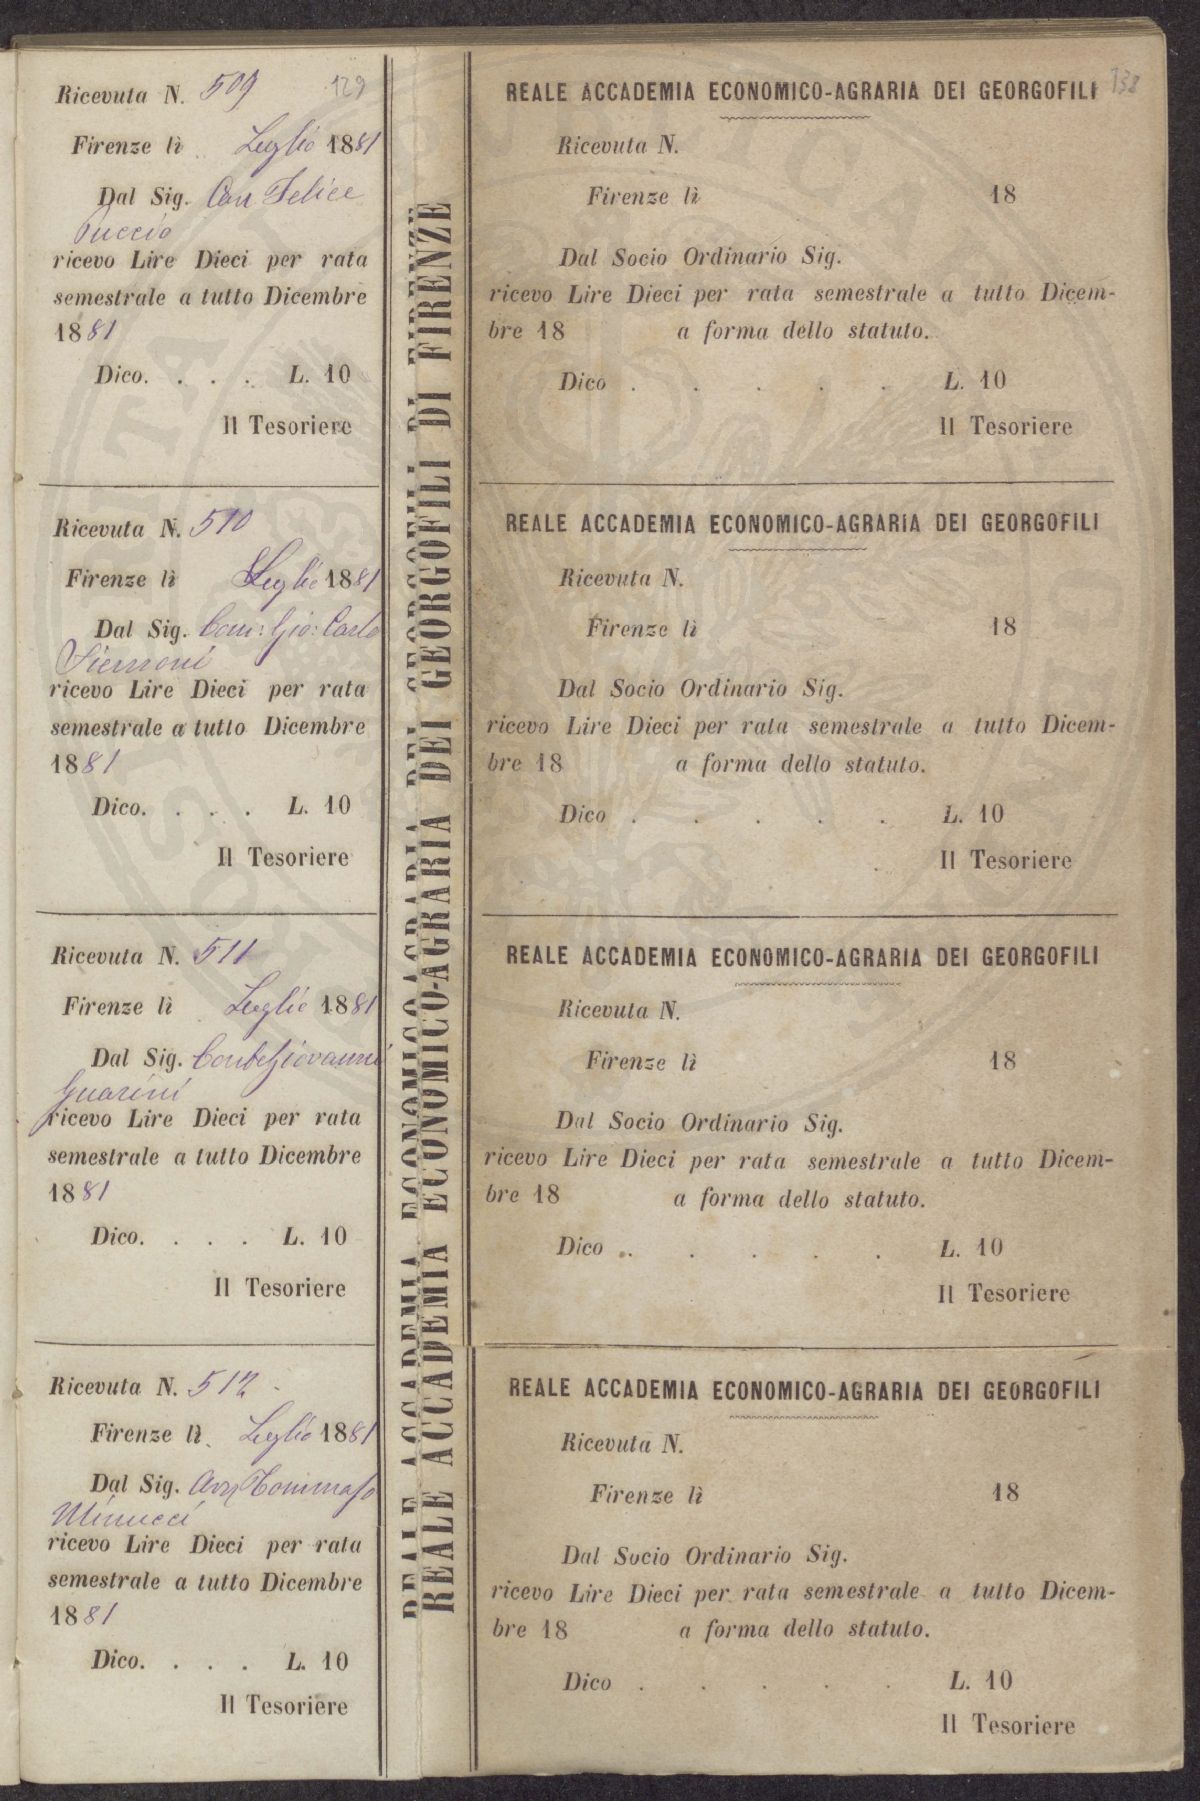 Ricevuta N. 509
129
Firenze lì Luglio 1881
Dal Sig. Cav Felice
Puccio
ricevo Lire Dieci per rata
semestrale a tutto Dicembre
1881
Dico. . . . L. 10
Il Tesoriere
Ricevuta N. 510
Firenze lì Luglio 1881
Dal Sig. Com: Gio: Carlo
Siemoni
ricevo Lire Dieci per rata
semestrale a tutto Dicembre
1881
Dico. . . . L. 10
Il Tesoriere
Ricevuta N. 511
Firenze lì Luglio 1881
Dal Sig. Conte Giovanni
Guarini
ricevo Lire Dieci per rata
semestrale a tutto Dicembre
1881
Dico. . . . L. 10
Il Tesoriere
Ricevuta N. 512
Firenze lì Luglio 1881
Dal Sig. Avv Tommaso
Minucci
ricevo Lire Dieci per rata
semestrale a tutto Dicembre
1881
Dico. . . . L. 10
Il Tesoriere
REALE ACCADEMIA ECONOMICO-AGRARIA DEI GEORGOFILI DI FIRENZE
REALE ACCADEMIA ECONOMICO-AGRARIA DEI GEORGOFILI DI FIRENZE
REALE ACCADEMIA ECONOMICO-AGRARIA DEI GEORGOFILI
138
Ricevuta N.
Firenze lì 18
Dal Socio Ordinario Sig.
ricevo Lire Dieci per rata semestrale a tutto Dicem-
bre 18 a forma dello statuto.
Dico . . . . . L. 10
Il Tesoriere
REALE ACCADEMIA ECONOMICO-AGRARIA DEI GEORGOFILI
Ricevuta N.
Firenze lì 18
Dal Socio Ordinario Sig.
ricevo Lire Dieci per rata semestrale a tutto Dicem-
bre 18 a forma dello statuto.
Dico . . . . . L. 10
Il Tesoriere
REALE ACCADEMIA ECONOMICO-AGRARIA DEI GEORGOFILI
Ricevuta N.
Firenze lì 18
Dal Socio Ordinario Sig.
ricevo Lire Dieci per rata semestrale a tutto Dicem-
bre 18 a forma dello statuto.
Dico . . . . . L. 10
Il Tesoriere
REALE ACCADEMIA ECONOMICO-AGRARIA DEI GEORGOFILI
Ricevuta N.
Firenze lì 18
Dal Socio Ordinario Sig.
ricevo Lire Dieci per rata semestrale a tutto Dicem-
bre 18 a forma dello statuto.
Dico . . . . . L. 10
Il Tesoriere